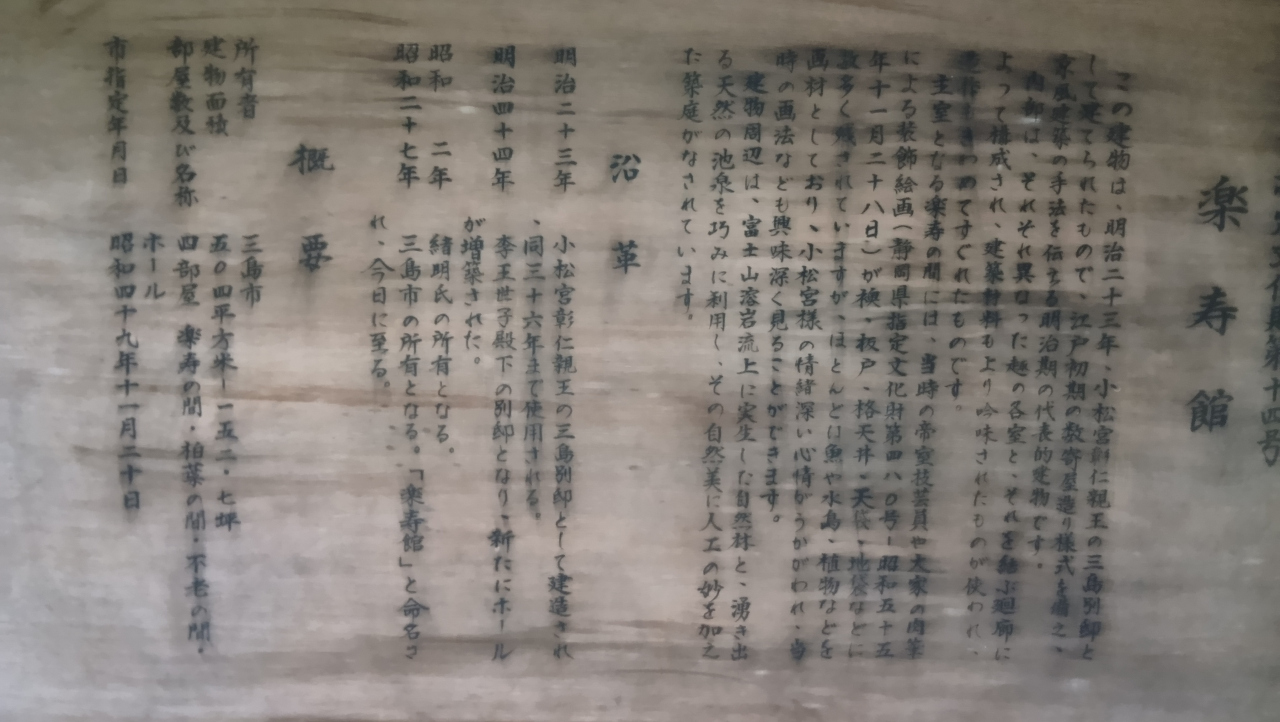 第十四号
楽寿館
この建物は、明治二十三年、小松宮彰仁親王の三島別邸と
して建てられたもので、江戸初期の数寄屋造り様式を備え、
京風建築の手法を伝える明治期の代表的建物です。
内部は、それぞれ異なった趣の各室と、それを結ぶ廻廊に
よって構成され、建築材料もより吟味されたものが使われ、
造作もきわめてすぐれたものです。
主室となる楽寿の間には、当時の帝室技芸員や大家の肉筆
による装飾絵画(静岡県指定文化財第四八〇号―昭和五十五
年十一月二十八日)が襖、板戸、格天井、天袋、地袋などに
数多く残されていますが、ほとんどは魚や水鳥、植物などを
画材としており、小松宮様の情緒深い心情がうかがわれ、当
時の画法なども興味深く見ることができます。
建物周辺は、富士山溶岩流上に実生した自然林と、湧き出
る天然の池泉を巧みに利用し、その自然美に人工の妙を加え
た築庭がなされています。
沿革
明治二十三年 小松宮彰仁親王の三島別邸として建造され
、同三十六年まで使用される。
明治四十四年 李王世子殿下の別邸となり、新たにホール
が増築された。
昭和 二年 緒明氏の所有となる。
昭和二十七年 三島市の所有となる。「楽寿館」と命名さ
れ、今日に至る。
概要
所有者 三島市
建物面積 五〇四平方米―一五二・七坪
部屋数及び名称 四部屋 楽寿の間・柏葉の間・不老の間・
ホール
市指定年月日 昭和四十九年十一月三十日